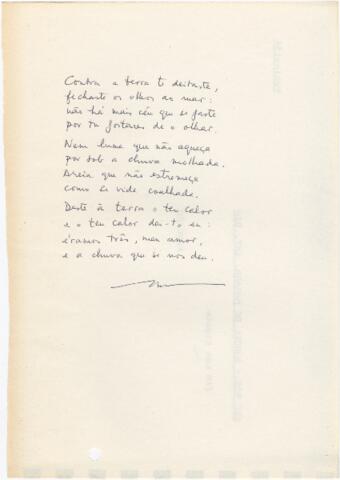 Contra a terra te deitaste,
fechaste os olhos ao mar:
não há mais céu que se faste
por tu fartares de o olhar.
Nem lume que não aqueça
por sob a chuva molhada.
Areia que não estremeça
como se vide coalhada.
Deste à terra o teu calor
e o teu calor dei-to eu:
éramos três, meu amor,
e a chuva que se nos deu.